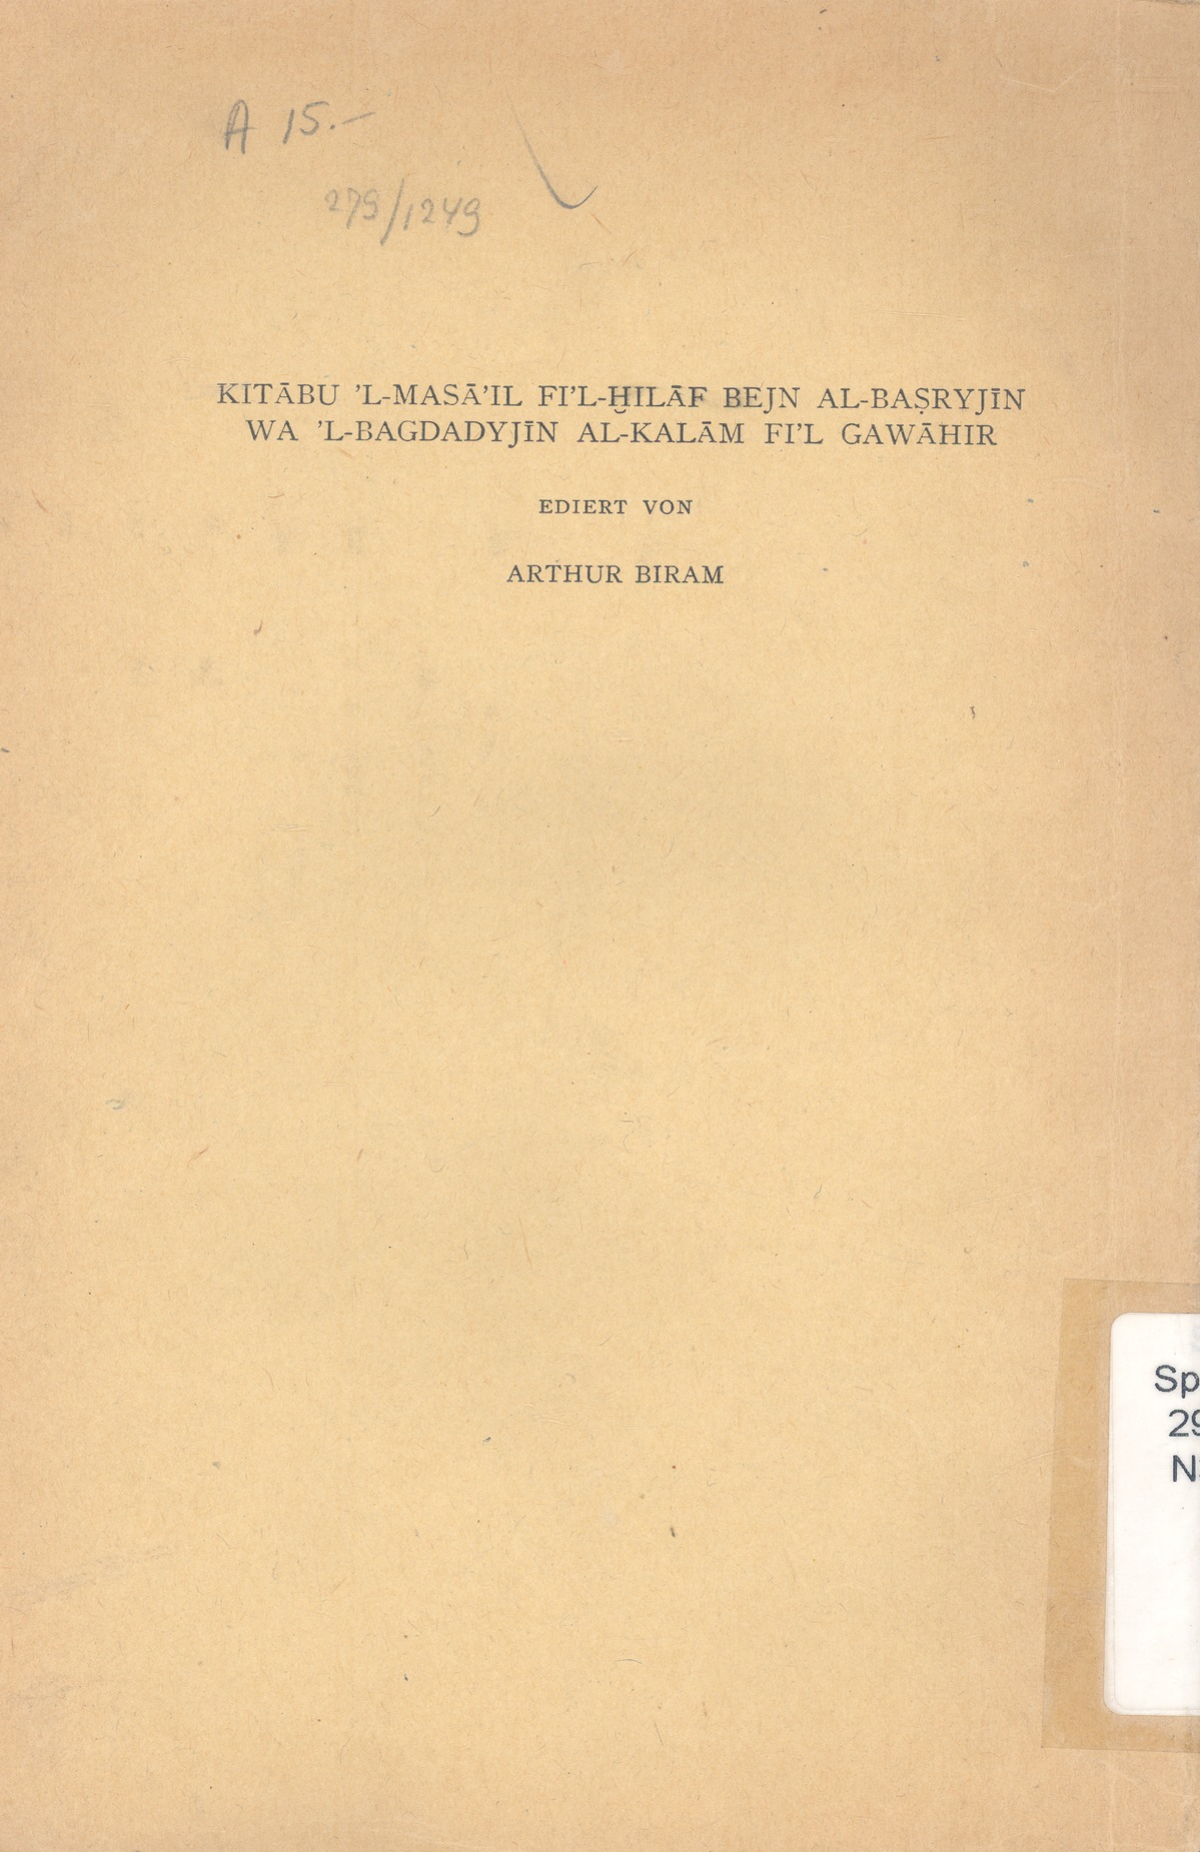 A 15.-
279/1249
KITĀBU ’L-MASĀ’IL FI’L-ḪILĀF BEJN AL-BAṢRYJĪN
WA ’L-BAGDADYJĪN AL-KALĀM FI’L GAWĀHIR
EDIERT VON
ARTHUR BIRAM
Sp
29
N